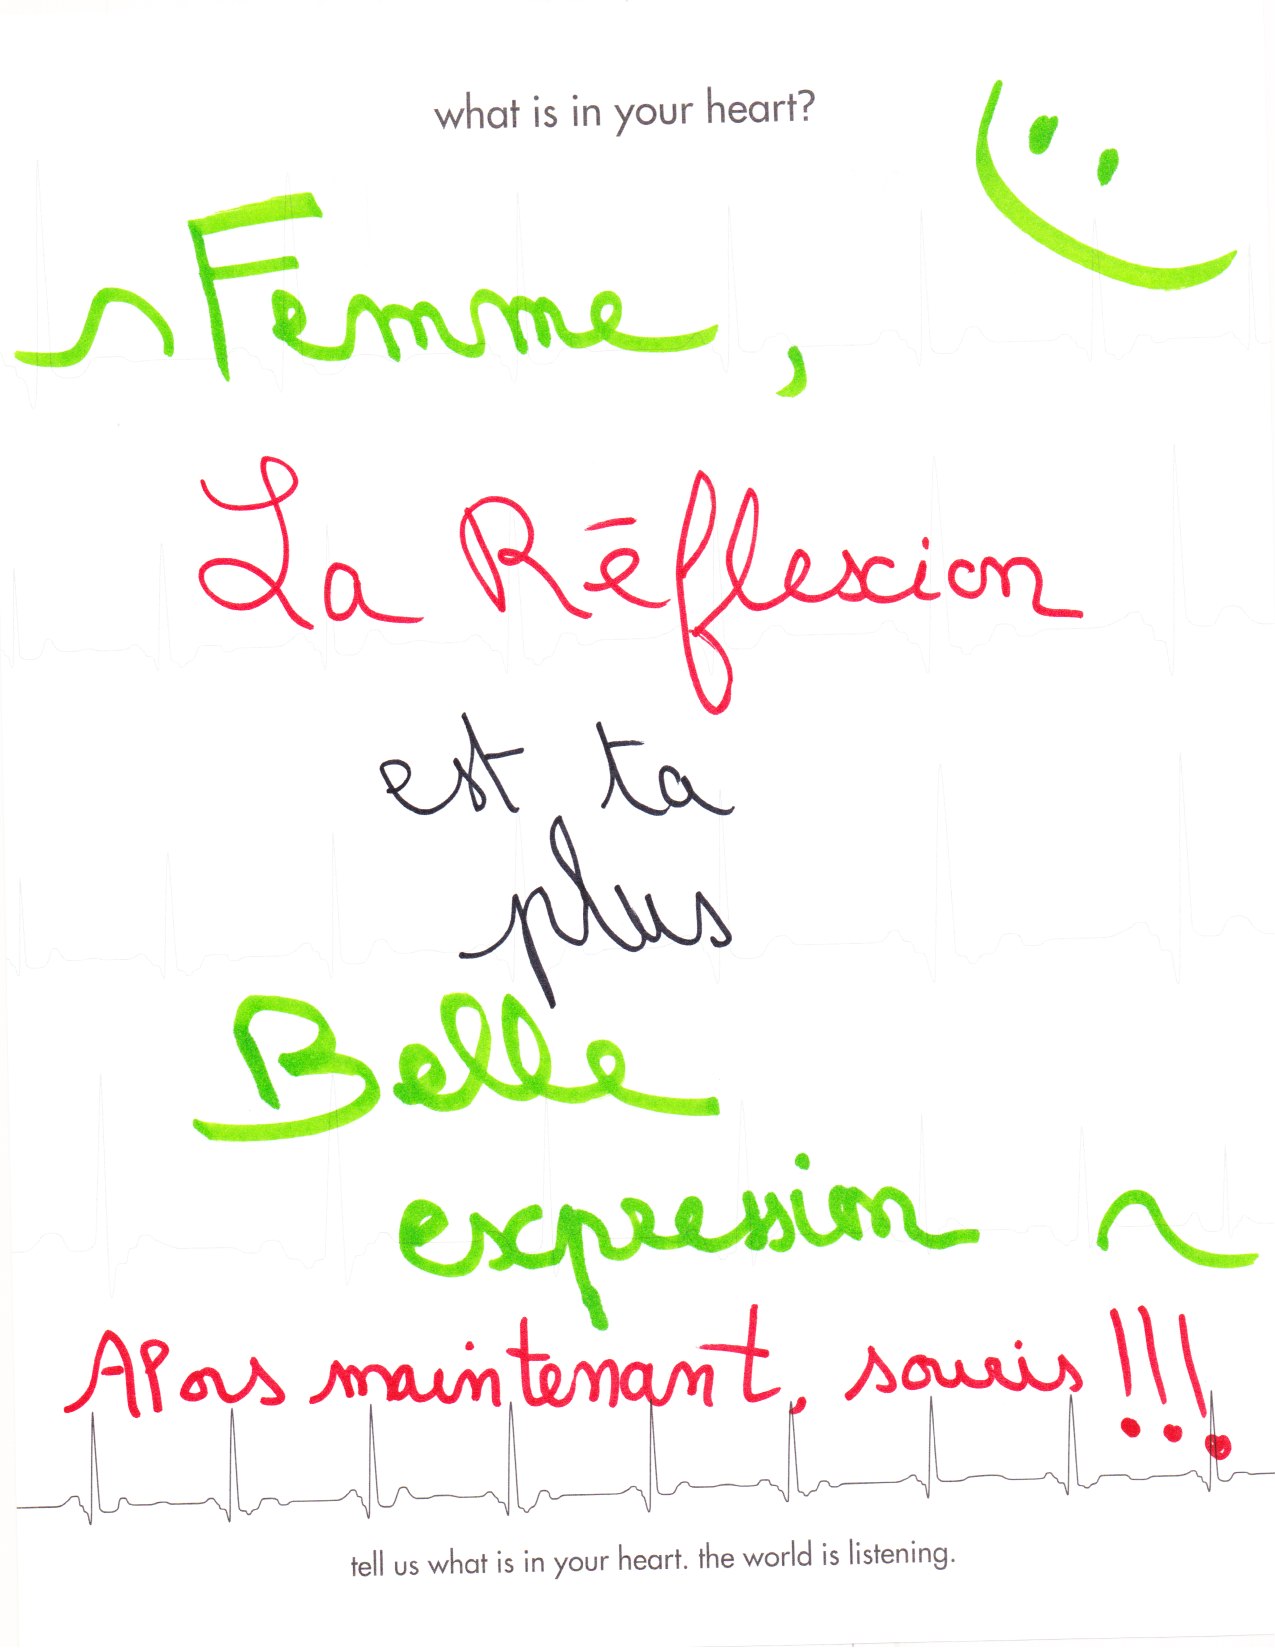 what is in your heart?
Femme,
La Réflexion
est ta
plus
Belle
expression
Alors maintenant, souris !!!
tell us what is in your heart. the world is listening.